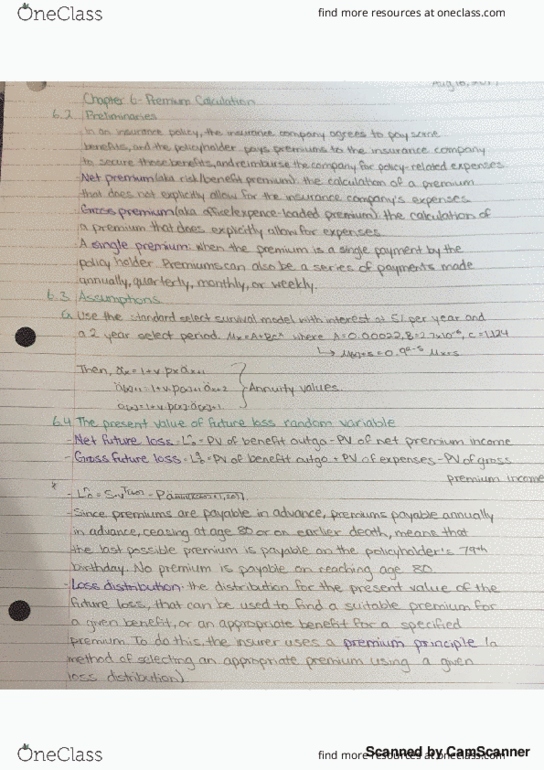 OneClass
find more resources at oneclass.com
Aug 16, 2017
Chapter 6 - Premium Calculation
6.2 Preliminaries
In an insurance policy, the insurance company agrees to pay some
benefits, and the policyholder pays premiums to the insurance company
to secure these benefits, and reimburse the company for policy-related expenses.
- Net premium (aka risk/benefit premium): the calculation of a premium
that does not explicitly allow for the insurance company's expenses
- Gross premium (aka office/expence-loaded premium): the calculation of
a premium that does explicitly allow for expenses.
- A single premium: when the premium is a single payment by the
policy holder. Premiums can also be a series of payments made
annually, quarterly, monthly, or weekly.
6.3 Assumptions
Use the standard select survival model with interest at 5% per year and
a 2 year select period. μx=A+Bcˣ where A=0.00022, B=2.7x10⁻⁶, c=1.124
Then, äx=1+v px äx+1
Annuity values.
6.4 The present value of future loss random variable
- Net future loss: Lⁿ₀ = PV of benefit outgo - PV of net premium income
- Gross future loss: Lᵍ₀ = PV of benefit outgo + PV of expenses - PV of gross
premium income
- Since premiums are payable in advance, premiums payable annually
in advance, ceasing at age 80 or on earlier death, means that
the last possible premium is payable on the policyholder's 79th
birthday. No premium is payable on reaching age 80.
- Loss distribution: the distribution for the present value of the
future loss, that can be used to find a suitable premium for
a given benefit, or an appropriate benefit for a specified
premium. To do this, the insurer uses a premium principle (a
method of selecting an appropriate premium using a given
loss distribution)
OneClass
find more resources at oneclass.com
Scanned by CamScanner